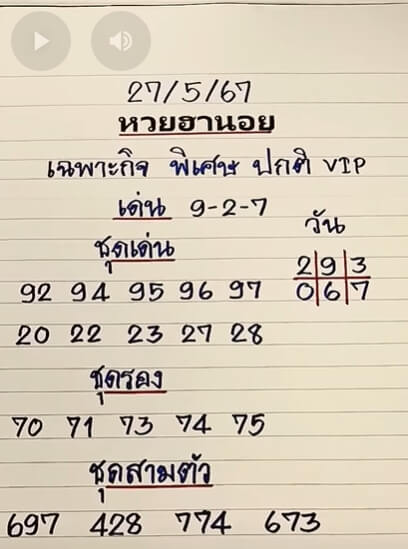 27/5/67
หวยฮานอย
เฉพาะกิจ พิเศษ ปกติ VIP
เด่น 9-2-7
วัน
ชุดเด่น
2 9 3
0 6 7
92 94 95 96 97
20 22 23 27 28
ชุดรอง
70 71 73 74 75
ชุดสามตัว
697 428 774 673